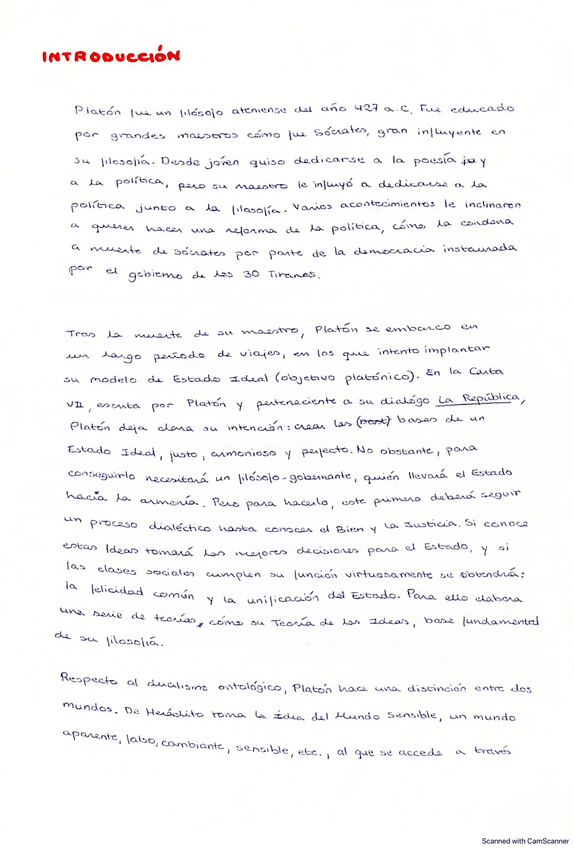 INTRODUCCIÓN
Platón fue un filósofo ateniense del año 427 a.C. Fue educado
por grandes maestros cómo fue Sócrates, gran influyente en
su filosofía. Desde joven quiso dedicarse a la poesía y
a la política, pero su maestro le influyó a dedicarse a la
política junto a la filosofía. Varios acontecimientos le inclinaron
a querer hacer una reforma de la política, cómo la condena
a muerte de Sócrates por parte de la democracia instaurada
por el gobierno de los 30 Tiranos.
Tras la muerte de su maestro, Platón se embarco en
un largo período de viajes, en los que intento implantar
su modelo de Estado Ideal (objetivo platónico). En la Carta
VII, escrita por Platón y perteneciente a su dialógo La República,
Platón deja clara su intención: crear las bases de un
Estado Ideal, justo, armonioso y perfecto. No obstante, para
conseguirlo necesitará un filósofo-gobernante, quién llevará el Estado
hacía la armenía. Pero para hacerlo, este primero deberá seguir
un proceso dialéctico hasta conocer el Bien y la Justicia. Si conoce
estas Ideas tomará las mejores decisiones para el Estado, y si
las clases sociales cumplen su función virtuosamente se obtendrá:
la felicidad común y la unificación del Estado. Para ello elabora
una serie de teorías, cómo su Teoría de las Ideas, base fundamental
de su filosofía.
Respecto al dualismo ontológico, Platón hace una distinción entre dos
mundos. De Heráclito toma la idea del Mundo Sensible, un mundo
aparente, falso, cambiante, sensible, etc., al que se accede a través
Scanned with CamScanner